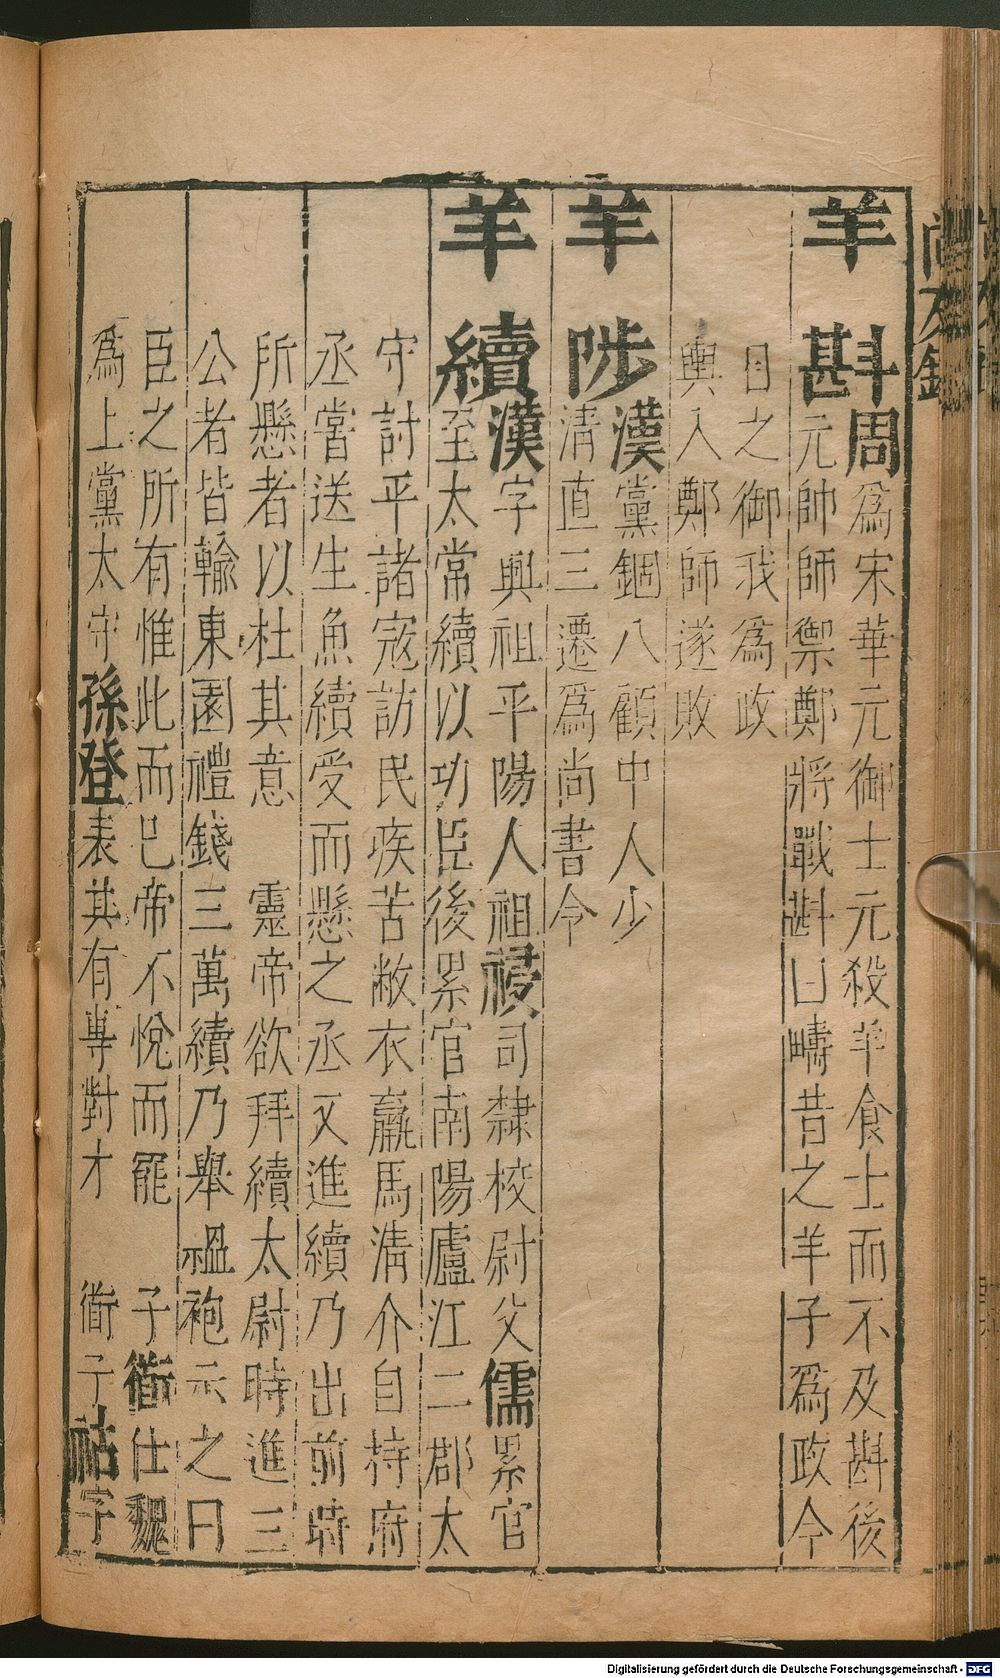 羊斟周為宋華元御士元殺羊食士而不及斟後
元帥師禦鄭將戰斟曰疇昔之羊子為政今
日之御我為政
輿入鄭師遂敗
羊陟漢黨錮八顧中人少
清直三遷為尚書令
羊續漢字興祖平陽人祖祲司隸校尉父儒累官
至太常續以功臣後累官南陽廬江二郡太
守討平諸寇訪民疾苦敝衣羸馬清介自持府
丞嘗送生魚續受而懸之丞又進續乃出前時
所懸者以杜其意 靈帝欲拜續太尉時進三
公者皆輸東園禮錢三萬續乃舉縕袍示之曰
臣之所有惟此而已帝不悅而罷 子衜仕魏
為上黨太守孫登表其有專對才 衜子祜字
Digitalisierung gefördert durch die Deutsche Forschungsgemeinschaft - DFG